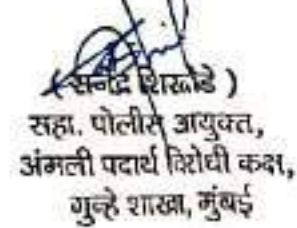 ( शिरतोडे )
सहा. पोलीस आयुक्त,
अंमली पदार्थ विरोधी कक्ष,
गुन्हे शाखा, मुंबई